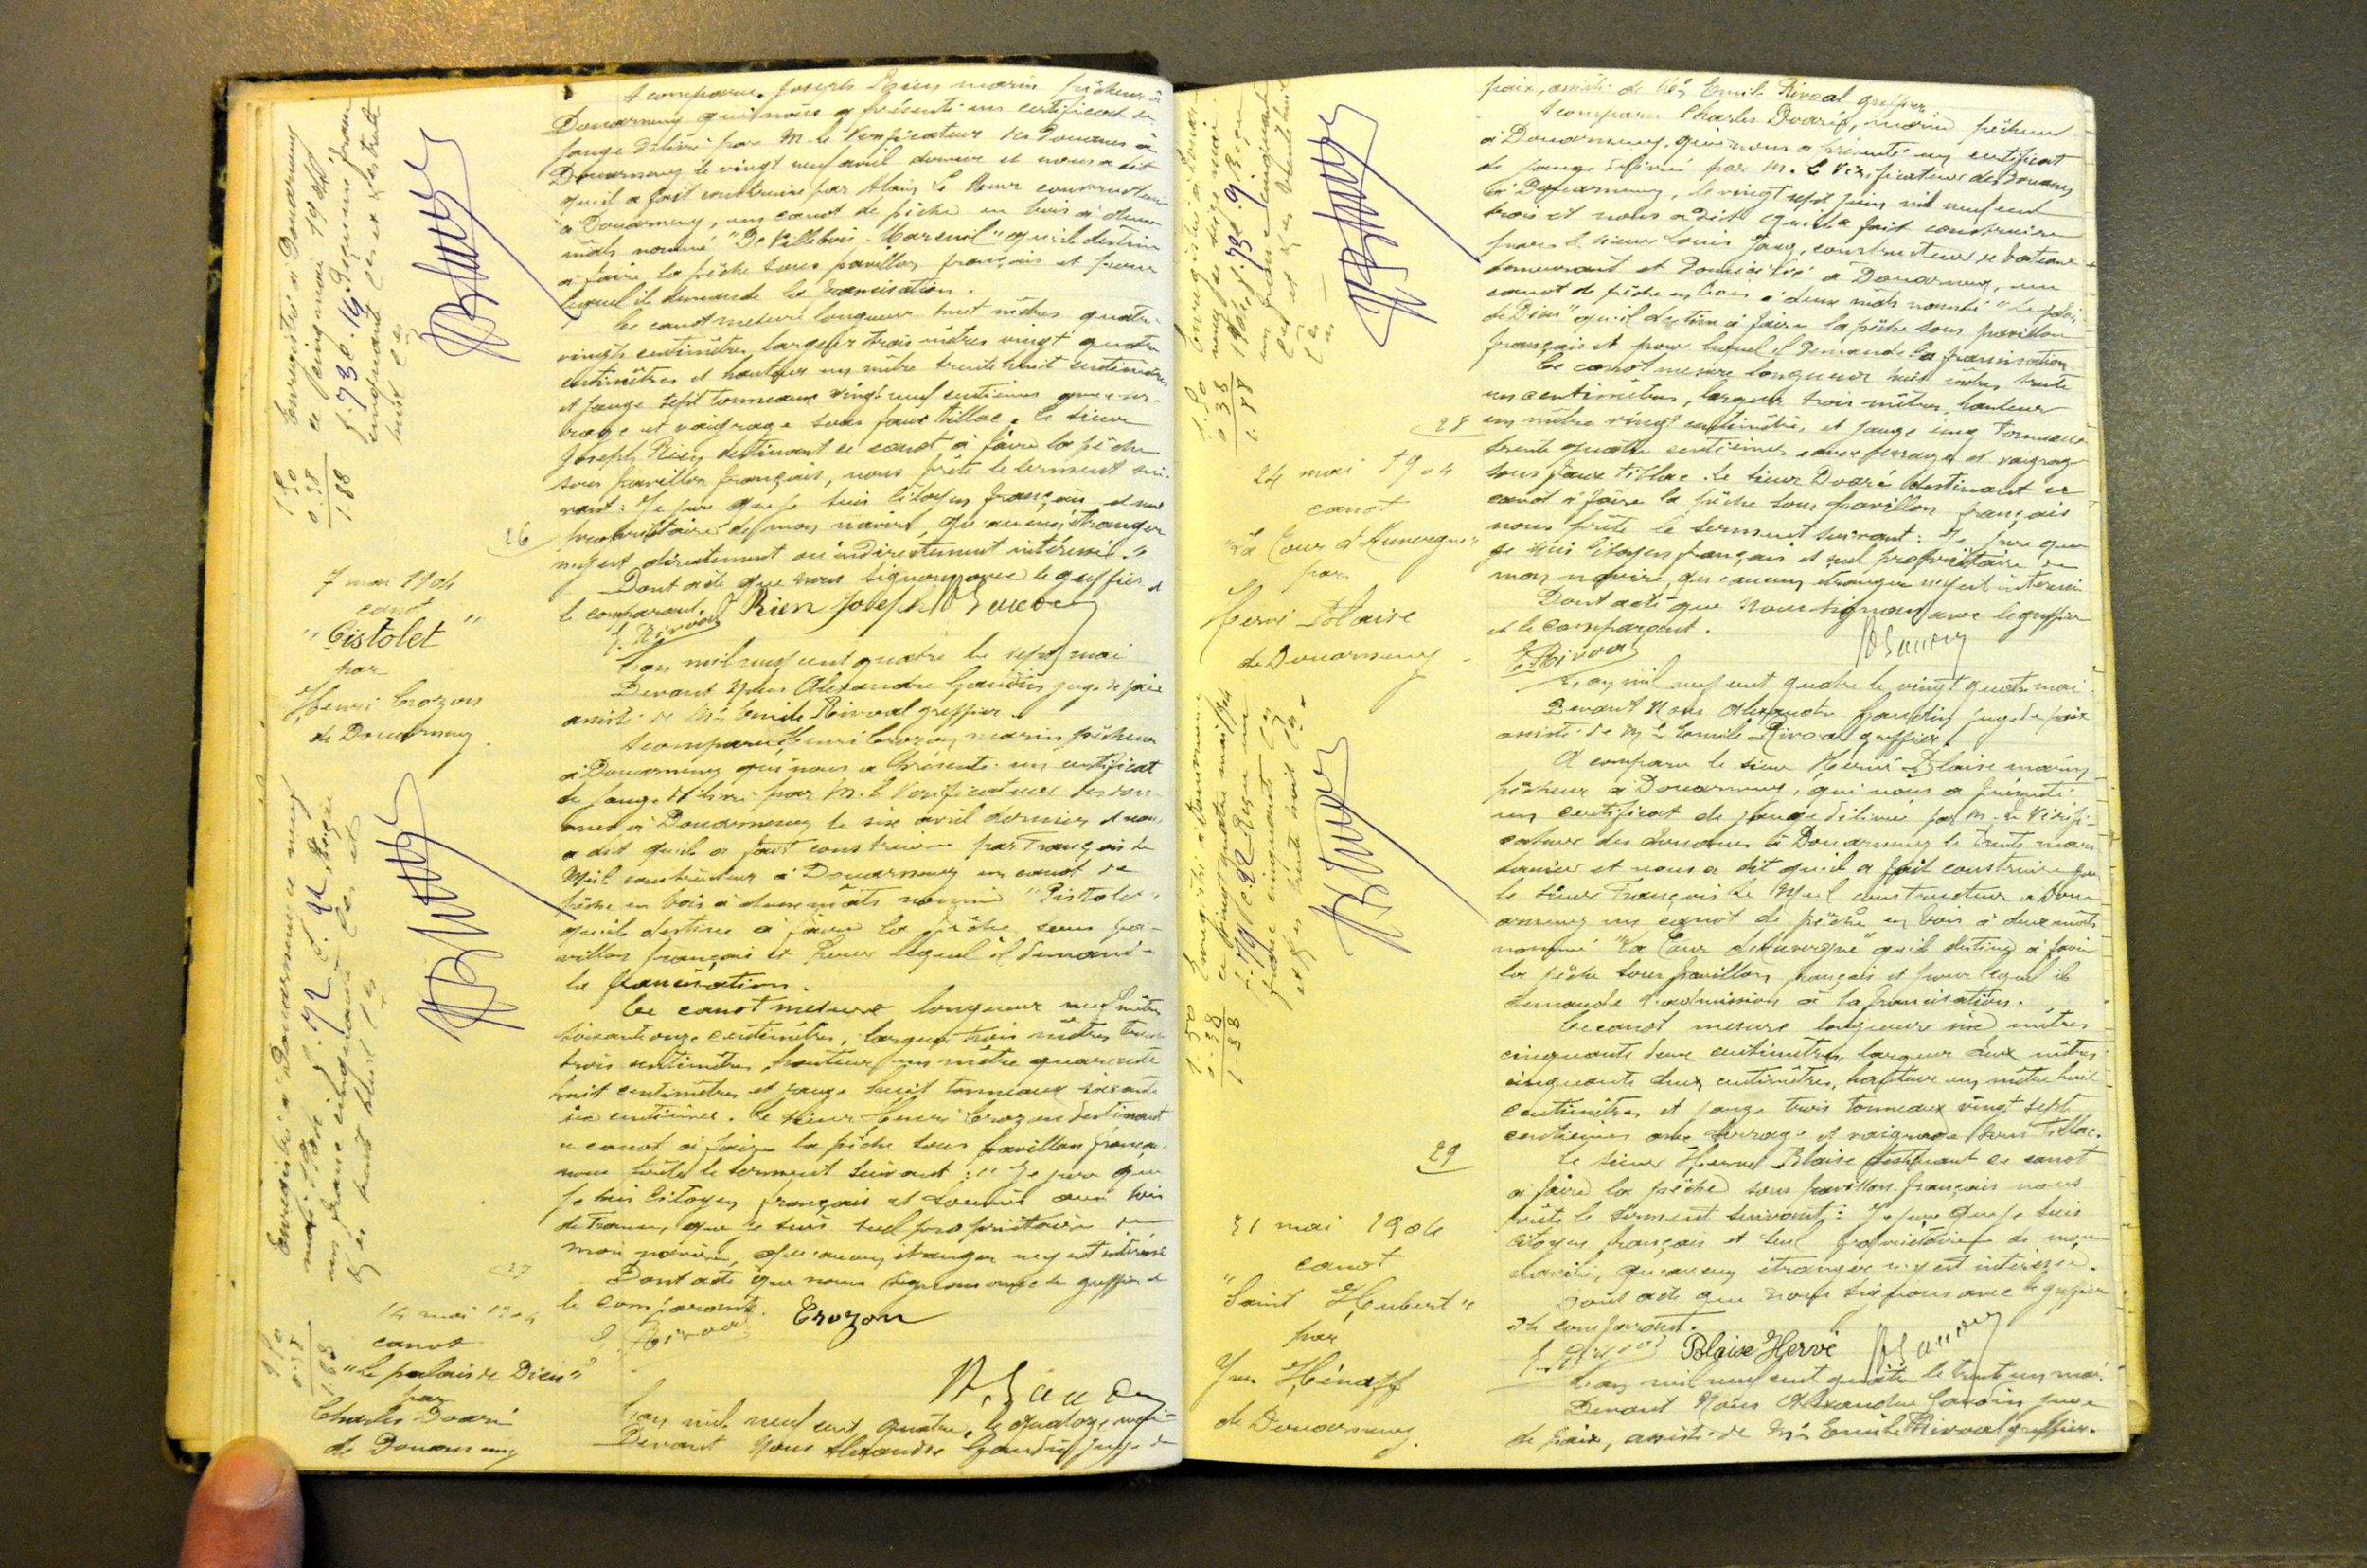 A comparu Joseph Rien marin pêcheur à
Douarnenez qui nous a présenté un certificat de
jauge délivré par M. le Vérificateur des Douanes à
Douarnenez le vingt neuf avril dernier et nous a dit
qu'il a fait construire par Alain Le Meur constructeur
à Douarnenez, un canot de pêche en bois à deux
mâts nommé "De Villebois-Mareuil" qu'il destine
à faire la pêche sous pavillon français et pour
lequel il demande la francisation.
Ce canot mesure longueur huit mètres quatre
vingts centimètres, largeur trois mètres vingt quatre
centimètres et hauteur un mètre trente huit centimètres
et jauge sept tonneaux vingt neuf centièmes avec
et vaigrage sous faux tillac. Le sieur
Joseph Rien destinant ce canot à faire la pêche
sous pavillon français, nous prête le serment sui-
vant: Je jure que je suis citoyen français et seul
propriétaire de mon navire, qu'aucun étranger
n'y est directement ou indirectement intéressé."
Dont acte que nous signons avec le greffier et
le comparant. Rien Joseph A Gaudin
E. Rivoal
L'an mil neuf cent quatre le sept mai
Devant Nous Alexandre Gaudin juge de paix
assisté de Me Emile Rivoal greffier.
A comparu Henri Crozon marin pêcheur
à Douarnenez qui nous a présenté un certificat
de jauge délivré par M. le Vérificateur des dou-
anes à Douarnenez le six avril dernier et nous
a dit qu'il a fait construire par François Le
constructeur à Douarnenez un canot de
pêche en bois à deux mâts nommé "Pistolet"
qu'il destine à faire la pêche sous pa-
villon français et pour lequel il demande
la francisation.
Ce canot mesure longueur neuf mètres
soixante onze centimètres, largeur trois mètres trente
trois centimètres, hauteur un mètre quarante
huit centimètres et jauge huit tonneaux soixante
six centièmes. Le sieur Henri Crozon destinant
ce canot à faire la pêche sous pavillon français
nous prête le serment suivant: "Je jure que
je suis citoyen français et soumis aux lois
de France, que je suis seul propriétaire de
mon navire, qu'aucun étranger n'y est intéressé
Dont acte que nous signons avec le greffier et
le comparant. Crozon
E. Rivoal
A. Gaudin
L'an mil neuf cent quatre, le quatorze mai
Devant Nous Alexandre Gaudin juge de
Enregistré à Douarnenez
ce cinq mai 1904
f. 73 c. 14. Reçu un franc
cinquante ces et Xes trente
huit ces
1.50
0.38
1.88
26
7 mai 1904
canot
"Pistolet"
par
Henri Crozon
de Douarnenez.
Enregistré à Douarnenez, ce neuf
mai 1904 f. 72 c. 22. Reçu
un franc cinquante ces et
Xes trente huit ces
1.50
0.38
1.88
27
14 mai 1904
canot
"Le palais de Dieu"
par
Charles Doaré
de Douarnenez
paix, assisté de Me Emile Rivoal greffier
A comparu Charles Doaré, marin pêcheur
à Douarnenez, qui nous a présenté un certificat
de jauge délivré par M. le Vérificateur des Douanes
à Douarnenez, le vingt sept juin mil neuf cent
trois et nous a dit qu'il a fait construire
par le sieur Louis Janq, constructeur de bateaux
demeurant et domicilié à Douarnenez, un
canot de pêche en bois à deux mâts nommé "Le palais
de Dieu" qu'il destine à faire la pêche sous pavillon
français et pour lequel il demande la francisation.
Ce canot mesure longueur huit mètres trente
un centimètres, largeur trois mètres, hauteur
un mètre vingt centimètres, et jauge cinq tonneaux
trente quatre centièmes avec serrage et vaigrage
sous faux tillac. Le sieur Doaré destinant ce
canot à faire la pêche sous pavillon français
nous prête le serment suivant: Je jure que
je suis citoyen français et seul propriétaire de
mon navire, qu'aucun étranger n'y est intéressé
Dont acte que nous signons avec le greffier
et le comparant.
E. Rivoal A Gaudin
L'an mil neuf cent quatre le vingt quatre mai
Devant Nous Alexandre Gaudin juge de paix
assisté de Me Emile Rivoal greffier.
A comparu le sieur Hervé Blaise marin
pêcheur à Douarnenez, qui nous a présenté
un certificat de jauge délivré par M. le Vérifi-
cateur des douanes à Douarnenez le trente mars
dernier et nous a dit qu'il a fait construire par
le sieur François Le constructeur à Dou-
arnenez un canot de pêche en bois à deux mâts
nommé "La Tour d'Auvergne" qu'il destine à faire
la pêche sous pavillon français et pour lequel il
demande l'admission à la francisation.
Ce canot mesure longueur six mètres
cinquante deux centimètres, largeur deux mètres
cinquante deux centimètres, hauteur un mètre huit
centimètres et jauge trois tonneaux vingt sept
centièmes avec serrage et vaigrage sous tillac.
Le sieur Hervé Blaise destinant ce canot
à faire la pêche sous pavillon français nous
prête le serment suivant: Je jure que je suis
citoyen français et seul propriétaire de mon
navire, qu'aucun étranger n'y est intéressé.
Dont acte que nous signons avec le greffier
et le comparant.
E. Rivoal Blaise Hervé A Gaudin
L'an mil neuf cent quatre le trente un mai
Devant Nous Alexandre Gaudin juge
de paix, assisté de Me Emile Rivoal greffier.
1.50
0.38
1.88
28
24 mai 1904
canot
"La Tour d'Auvergne"
par
Hervé Blaise
de Douarnenez
Enregistré à Douarnenez
ce vingt quatre mai 1904
f. 79 c. 22 Reçu un
franc cinquante ces
et Xes trente huit ces
1.50
0.38
1.88
29
31 mai 1904
canot
"Saint Hubert"
par
Yves Hénaff
de Douarnenez.